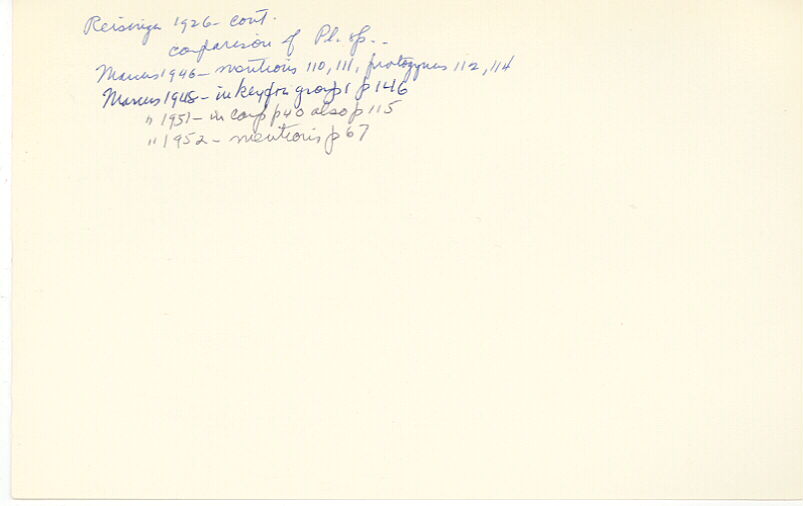 Reisinger 1926 - cont.
comparison of Pl. sp..
Marcus 1946 - mentions 110, 111, protogynus 112, 114
Marcus 1948 - in key for group 1 p 146
" 1951 - in comp p 40 also p 115
" 1952 - mentions p 67